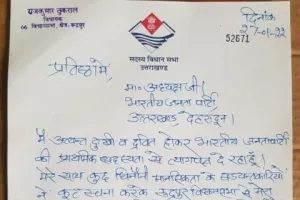 राजकुमार ठुकराल
विधायक
66 विधानसभा, क्षेत्र-रूद्रपुर
सदस्य विधान सभा
उत्तराखण्ड
दिनांक
27-01-22
52671
प्रतिष्ठा में,
मा० अध्यक्ष जी!
भारतीय जनता पार्टी,
उत्तराखण्ड, देहरादून।
मैं अत्यन्त दुःखी व द्रवित होकर भारतीय जनता पार्टी
की प्राथमिक सदस्यता से त्यागपत्र दे रहा हूँ।
मेरे साथ कुछ घिनौनी मानसिकता के षडयन्त्रकारियों
ने कूट रचना करके रूद्रपुर विधानसभा से मेरा